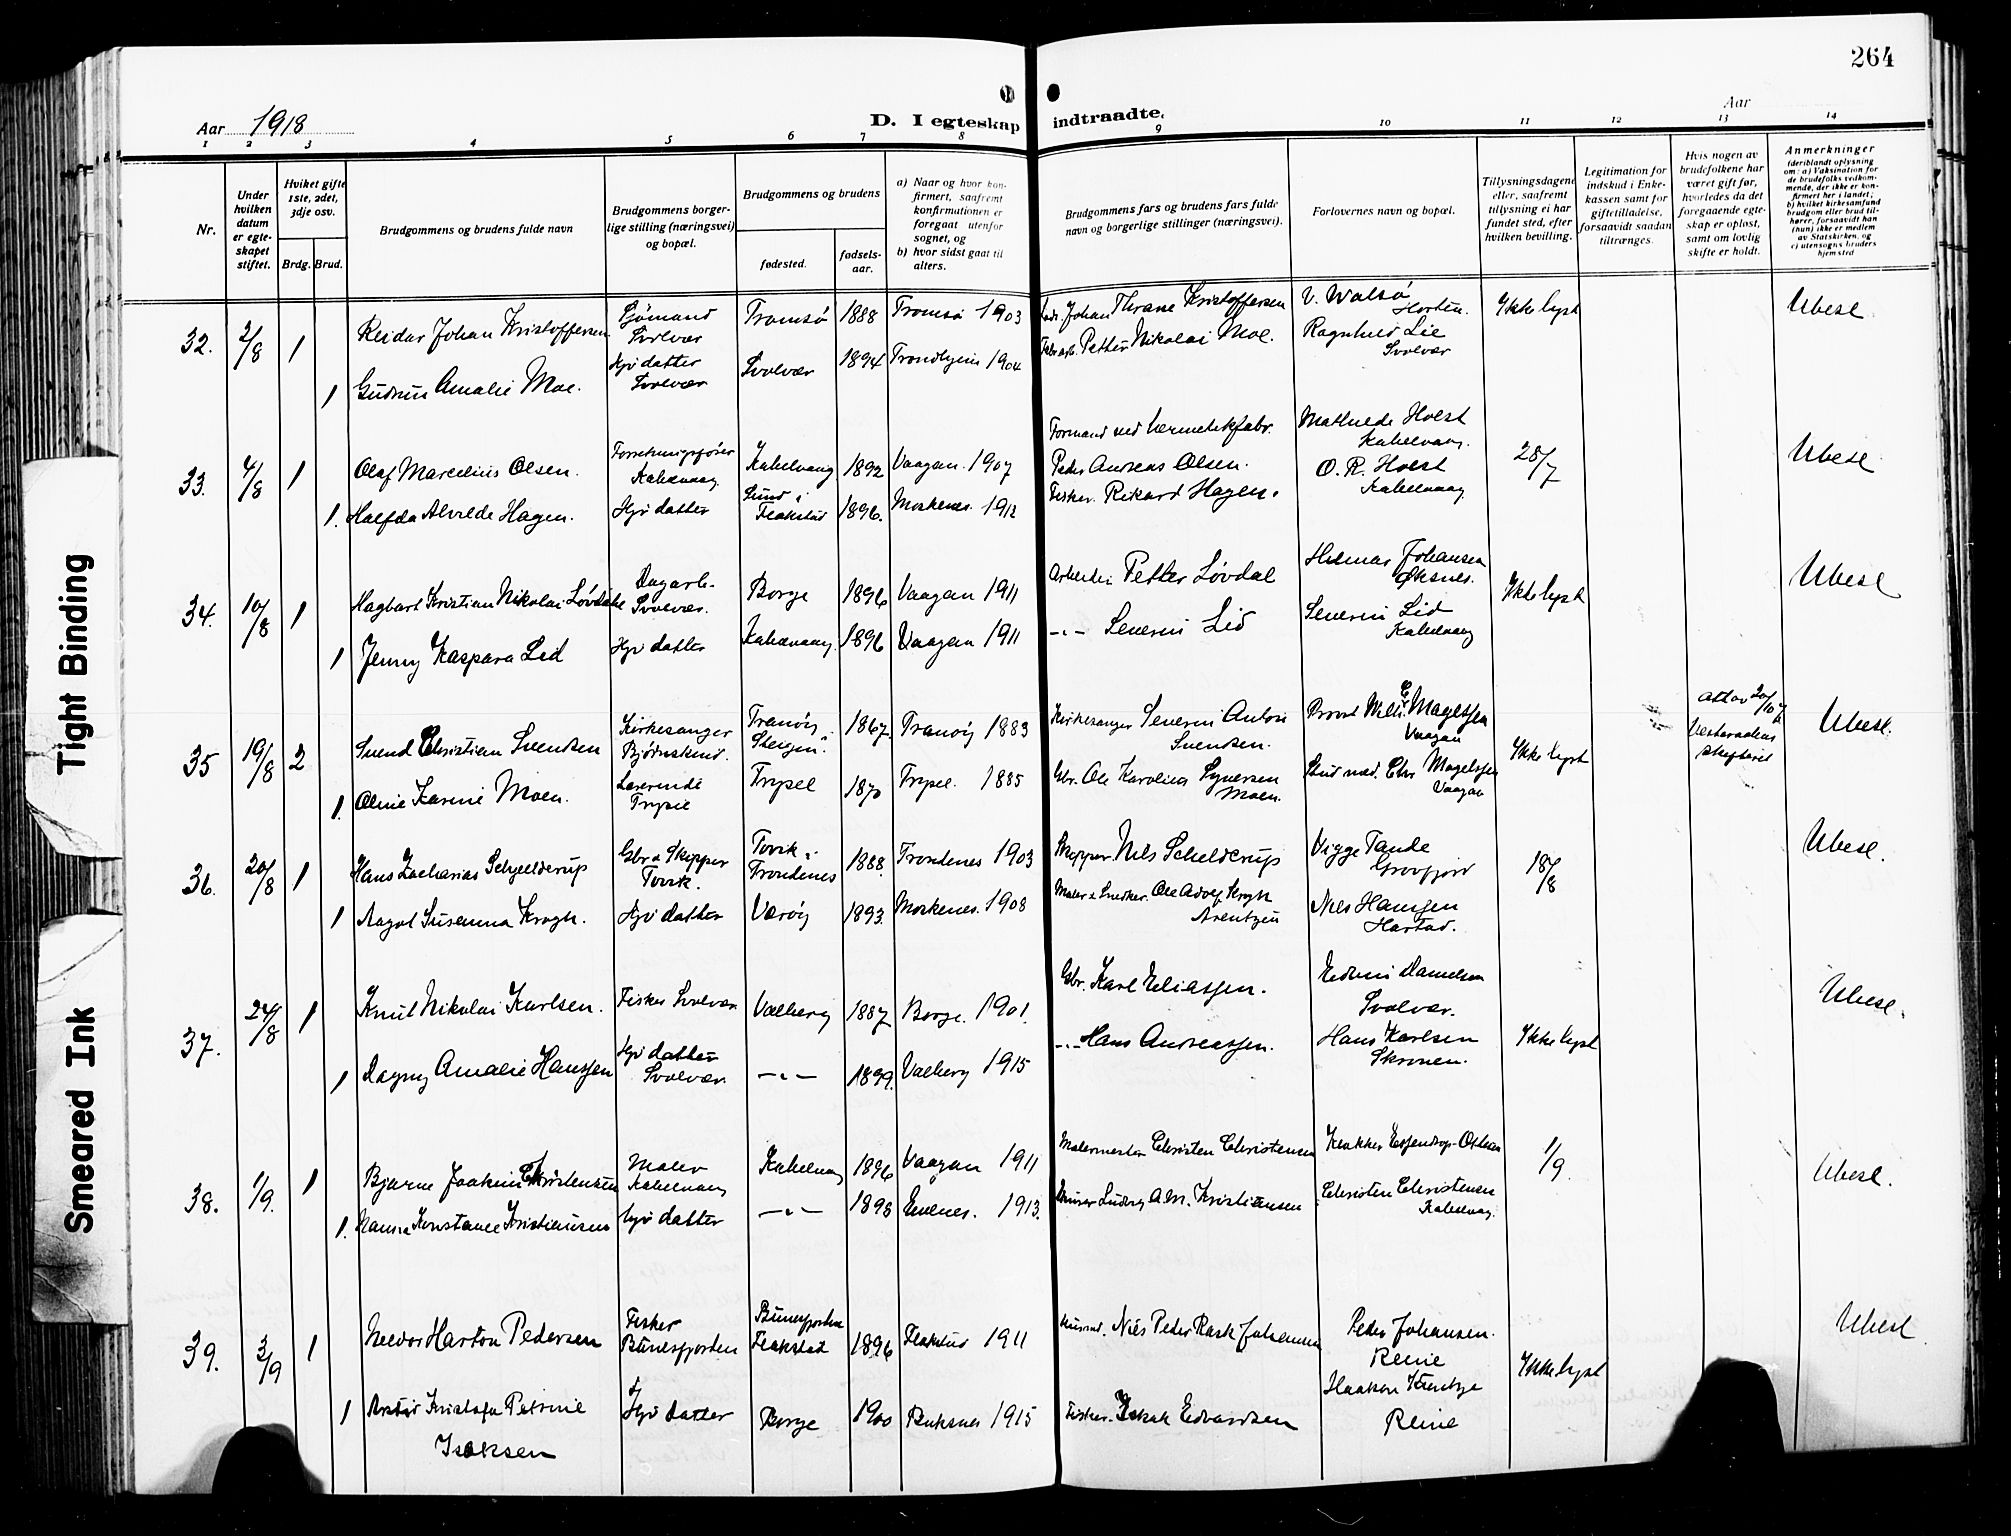 264
Aar 1918
D. I egteskap indtraadte.
Aar
1 2 3 4 5 6 7 8 9 10 11 12 13 14
Nr.
Under hvilken datum er egteskapet stiftet.
Hvilket gifte 1ste, 2det, 3dje osv.
Brdg. Brud.
Brudgommens og brudens fulde navn
Brudgommens borgerlige stilling (næringsvei) og bopæl.
Brudgommens og brudens
fødested.
fødselsaar.
a) Naar og hvor konfirmert, saafremt konfirmationen er foregaat utenfor sognet, og
b) hvor sidst gaat til alters.
Brudgommens fars og brudens fars fulde navn og borgerlige stillinger (næringsvei).
Forlovernes navn og bopæl.
Tillysningsdagene eller, saafremt tillysning ei har fundet sted, efter hvilken bevilling.
Legitimation for indskud i Enkekassen samt for giftetilladelse, forsaavidt saadan tiltrænges.
Hvis nogen av brudefolkene har været gift før, hvorledes da det foregaaende egteskap er opløst, samt om lovlig skifte er holdt.
Anmerkninger
(deriblandt oplysning om: a) Vaksination for de brudefolks vedkommende, der ikke er konfirmert her i landet; b) hvilket kirkesamfund brudgom eller brud tilhører, forsaavidt han (hun) ikke er medlem av Statskirken, og c) utensogns bruders hjemsted
32. 2/8 1 Reidar Johan Kristoffersen Sjømand Svolvær Tromsø 1888 Tromsø 1903 Johan Thrane Kristoffersen V. Walsø Horten. Ikke lyst Ubesl
1 Gudrun Amalie Moe. Hjv datter Svolvær Svolvær 1894 Trondhjem 1904 Fabr.arb. Petter Nikolai Moe. Ragnhild Lie Svolvær
33. 4/8 1 Olaf Marcelius Olsen. Forretningsfører Kabelvaag Kabelvaag 1892 Vaagan. 1907 Formand ved hermetikfabr. Peder Andreas Olsen. Mathilde Holst Kabelvaag. 28/7 Ubesl
1. Halfda Alvilde Hagen. Hjv datter Sund i Flakstad 1896. Moskenes. 1912 Fisker. Rikard Hagen. O. R. Holst Kabelvaag
34. 10/8 1 Hagbart Kristian Nikolai Løvdahl Dagarb. Svolvær. Borge 1896 Vaagan 1911 Arbeider Petter Løvdal Hilmar Johansen Øksnes. Ikke lyst Ubesl
1 Jenny Kaspara Lid Hjv datter Kabelvaag. 1896 Vaagan 1911 -"- Severin Lid Severin Lid Kabelvaag
35 19/8 2 Svend Christian Svendsen Kirkesanger Bjørnskind. Tranøy Steigen. 1867. Tranöy 1883 Kirkesanger Severin Anton Svendsen. Provst Magelssen Vaagan Ikke lyst 20/10 Vesteraalens Ubesl.
1. Oline Karine Moen. Lærerinde Trysil Trysel 1870 Trysel. 1885 Gbr. Ole Karolius Syversen Moen. Stud med. Chr Magelssen Vaagan
36. 20/8 1 Hans Zacharias Schjelderup Gbr & Skipper Tovik. Tovik i Trondenes 1888. Trondenes 1903 Skipper Nils Schelderup Vigge Tande Grovfjord 18/8 Ubesl.
1 Aagot Susanna Krogh. Hjv datter Værøy 1893. Moskenes. 1908 Maler & Snedker. Ole Adolf Krogh Arentzen Nils Hansen Harstad.
37. 24/8 1 Knut Nikolai Karlsen. Fisker Svolvær Valberg 1887 Borge. 1901. Gbr. Karl Eliassen. Edvin Danielsen Svolvær. Ikke lyst Ubesl.
1 Dagny Amalie Hanssen Hjv datter Svolvær -"- 1899. Valberg 1915 -"- Hans Andreassen. Hans Karlsen Skroven.
38. 1/9. 1 Bjarne Joakim Christensen Maler Kabelvaag Kabelvaag 1896 Vaagan 1911 Malermester Christen Christensen Klokker Ottesen 1/9. Ubesl.
1. Hanna Konstance Kristiansen Hjv datter -"- 1898 Evenes. 1913. Murer Ludvig A.M. Kristiansen Christen Christensen Kabelvaag.
39. 3/9 1 Halvor Harton Pedersen Fisker Bunesfjorden Bunesfjorden Flakstad 1896 Flakstad 1911 Nils Peder Rask Johansen Peder Johansen. Reine Ikke lyst Ubesl
1 Kristofa Petrine Isaksen Hjv datter Borge 1900 Buksnes 1915 Fisker. Isak Edvardsen Haakon Reine
Tight Binding
Smeared Ink